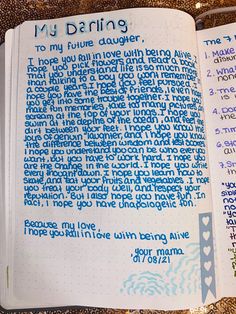 My Darling
To my future daughter,
I hope you fall in love with being Alive
I hope you pick flowers, and read a book
that you understand life is so much more
than talking to a boy you won't remember in
a couple years. I hope you feel pursued. I
hope you have the best of friends, even if
you get into some trouble together. I hope you
make fun memories, take too many pictures and
scream at the top of your lungs. I hope you
swim at the depths of the ocean, and feel the
dirt between your feet. I hope you know the
joys of genuin laughter, and I hope you know
the difference between wisdom and test scores
I hope you understand you can be who ever you
want, but you have to work hard. I hope you
are the change in the world. I hope you write
every thought down. I hope you learn how to
skate, and eat your fruits and vegetables. I hope
you treat your body well, and respect your
reputation. But I also hope you have fun. In
fact, I hope you have unapologetic fun.
Because my love,
I hope you fall in love with being alive
your mama
01/08/21
The 7
1. Make
2.
3.
4.
5.
6.
7.